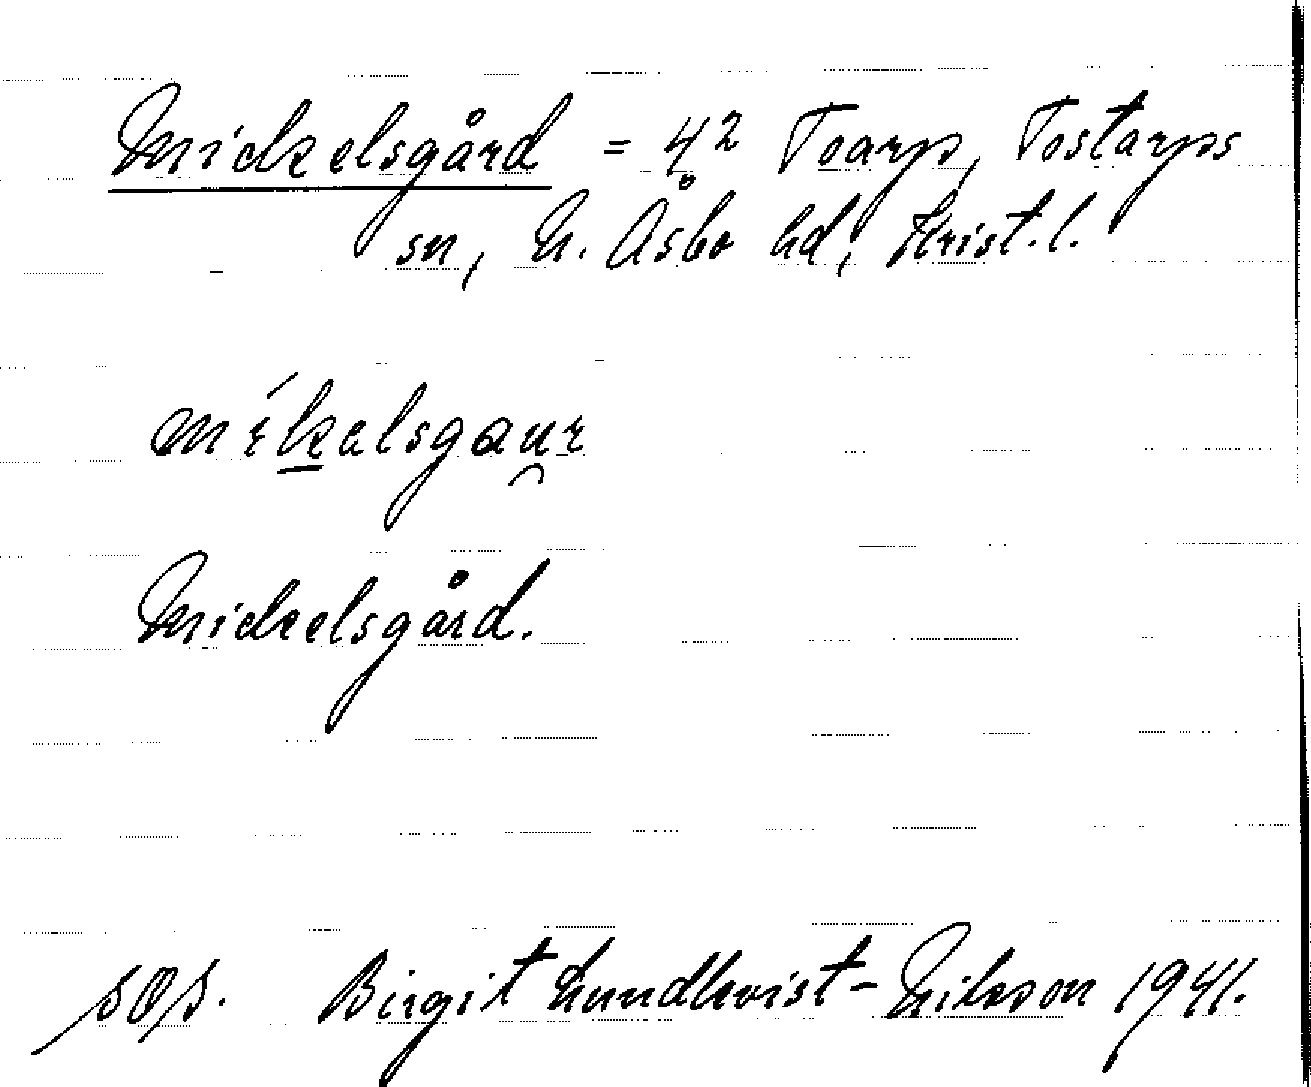 Mickelsgård = 4² Toarp, Tostarps
sn, N. Åsbo hd, Krist.l.
mikalsgaur
Mickelsgård.
Birgit Lundkvist-Nilsson 1941.